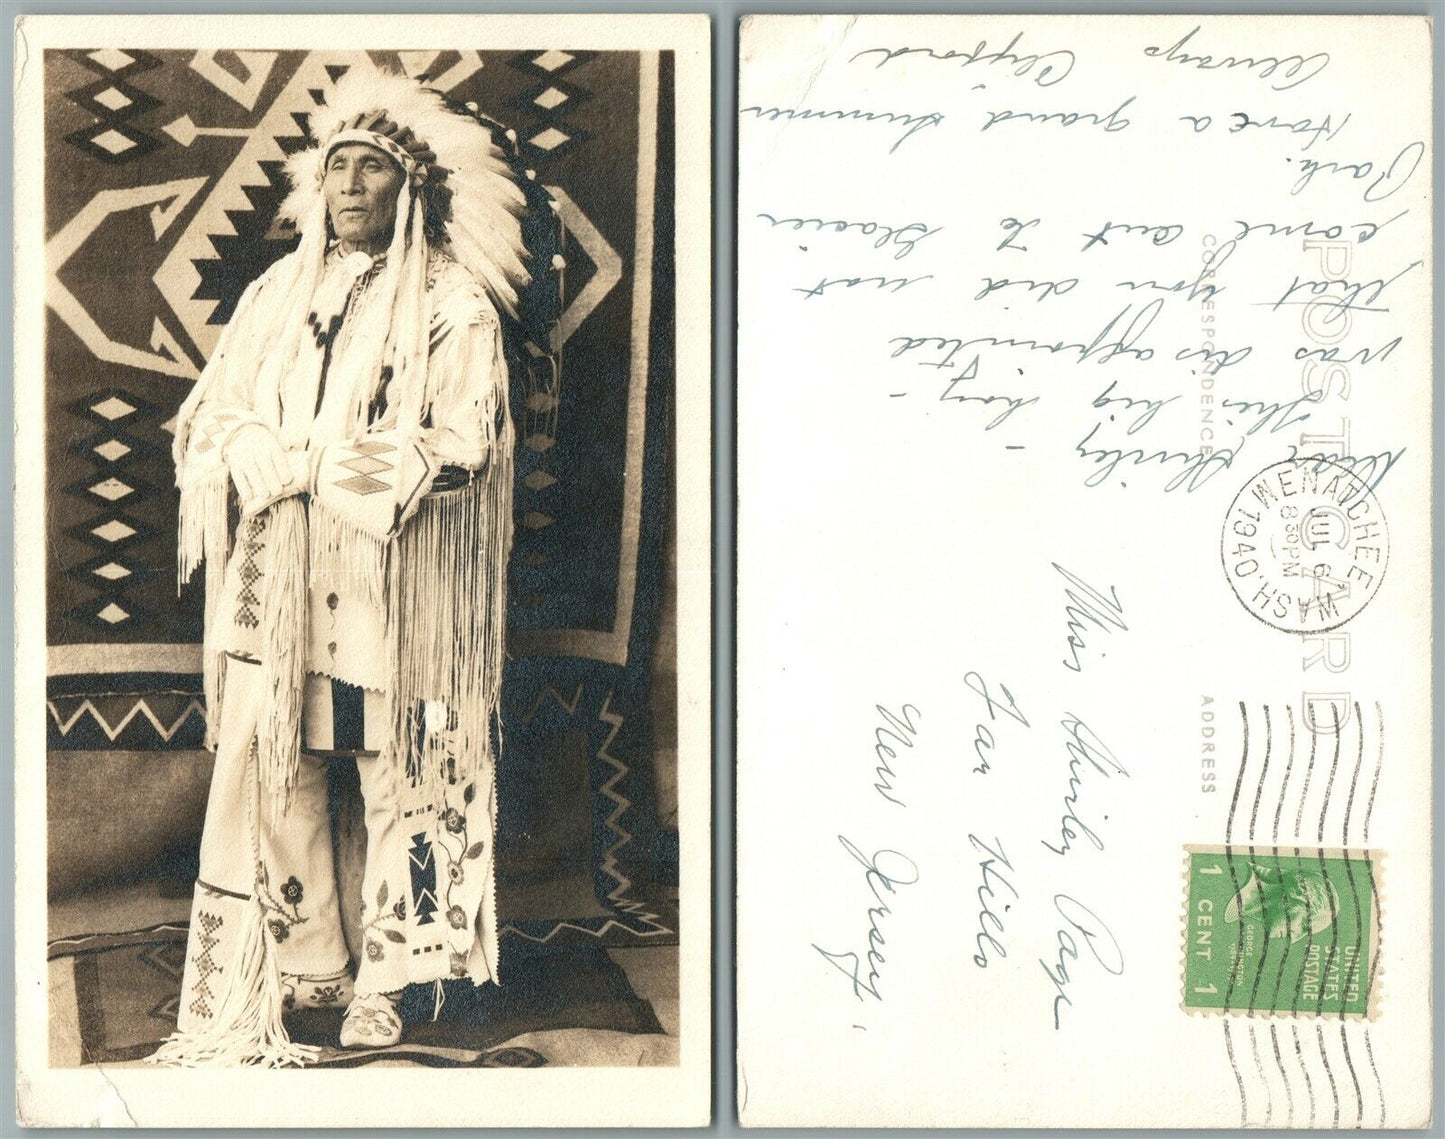 POST CARD
CORRESPONDENCE
ADDRESS
Dear Shirley –
This big boy –
was disappointed
that you did not
come out to Glacier
Park.
Have a grand summer
Always Clifford
WENATCHEE WASH.
JUL 6
8 30 PM
1940
Miss Shirley Page
Far Hills
New Jersey.
UNITED
STATES
POSTAGE
GEORGE
WASHINGTON
1789-1797
1 CENT 1